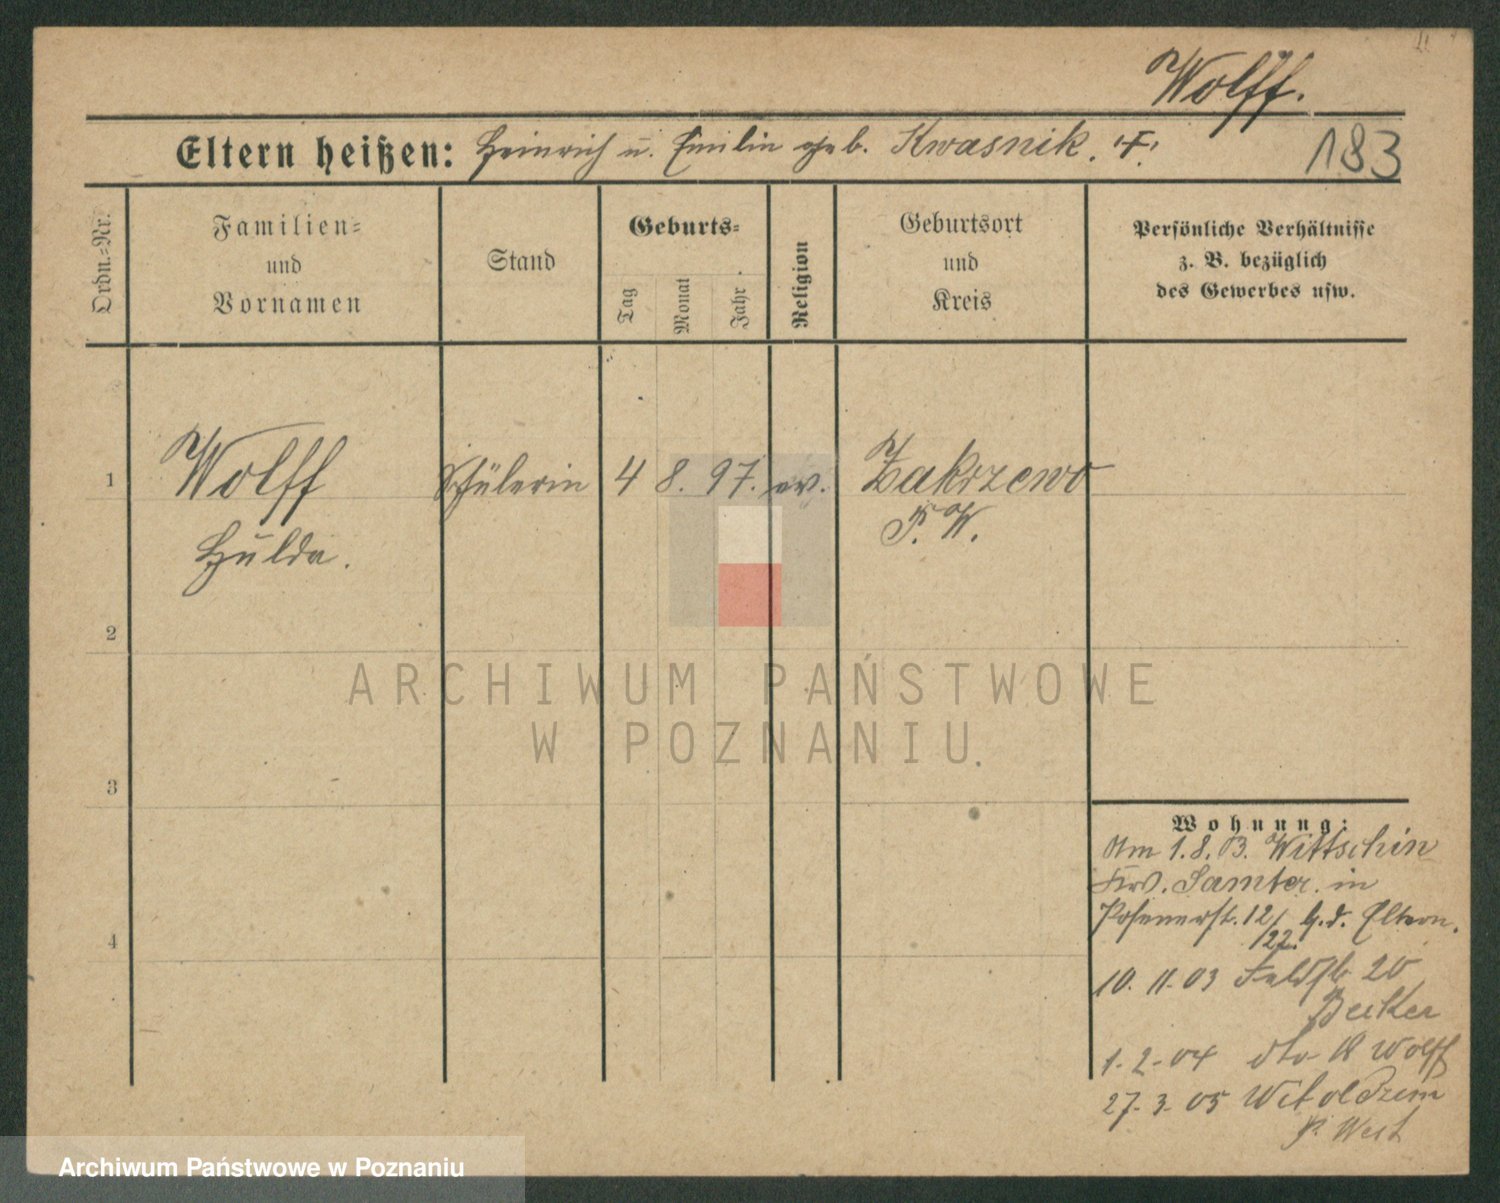 Wolff.
Eltern heißen: Heinrich u. Emilie geb. Kwasnik.
183
Ordn.=Nr.
Familien=
und
Vornamen
Stand
Geburts=
Tag
Monat
Jahr
Religion
Geburtsort
und
Kreis
Persönliche Verhältnisse
z. B. bezüglich
des Gewerbes usw.
1
Wolff
Schülerin
4
8.
97.
ev.
Zakrzewo
P. W.
Hulda.
2
3
4
ARCHIWUM PAŃSTWOWE
W POZNANIU
Wohnung:
Am 1.8.03. Wittschin
Krs. Samter. in
Posenerst. 12/ b. d. Eltern.
/22.
10. 11. 03 Feldstr 20
Becker
1-2-04 dto 18 Wolff
27-3-05
P. West
Archiwum Państwowe w Poznaniu